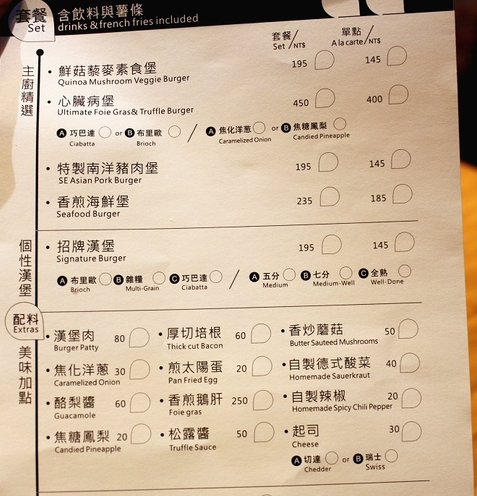 套餐 含飲料與薯條
Set drinks & french fries included
套餐 單點
Set/NT$ A la carte/NT$
主廚精選
• 鮮菇藜麥素食堡 195 145
Quinoa Mushroom Veggie Burger
• 心臟病堡 450 400
Ultimate Foie Gras& Truffle Burger
A 巧巴達 or B 布里歐 / A 焦化洋蔥 or B 焦糖鳳梨
Ciabatta Brioch Caramelized Onion Candied Pineapple
• 特製南洋豬肉堡 195 145
SE Asian Pork Burger
• 香煎海鮮堡 235 185
Seafood Burger
個性漢堡
• 招牌漢堡 195 145
Signature Burger
A 布里歐 B 雜糧 C 巧巴達 / A 五分 B 七分 C 全熟
Brioch Multi-Grain Ciabatta Medium Medium-Well Well-Done
配料
Extras
美味加點
• 漢堡肉 80 • 厚切培根 60 • 香炒蘑菇 50
Burger Patty Thick cut Bacon Butter Sauteed Mushrooms
• 焦化洋蔥 30 • 煎太陽蛋 20 • 自製德式酸菜 40
Caramelized Onion Pan Fried Egg Homemade Sauerkraut
• 酪梨醬 60 • 香煎鵝肝 250 • 自製辣椒 20
Guacamole Foie gras Homemade Spicy Chili Pepper
• 焦糖鳳梨 20 • 松露醬 50 • 起司 30
Candied Pineapple Truffle Sauce Cheese
A 切達 or B 瑞士
Chedder Swiss